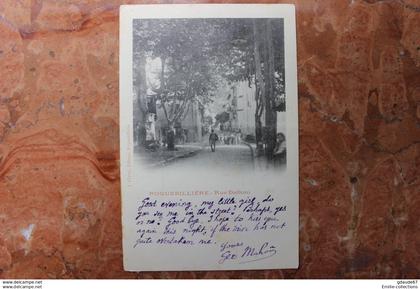 ROQUEBILLIÈRE. - Rue Dalloni
Good evening, my little girl, do
you see me in the street? Perhaps, yes
or no? Good bye. I hope to kiss you
again this night, if the wine has not
quite overtaken me. Yours
Geo
gdaude65
Emilie-collections